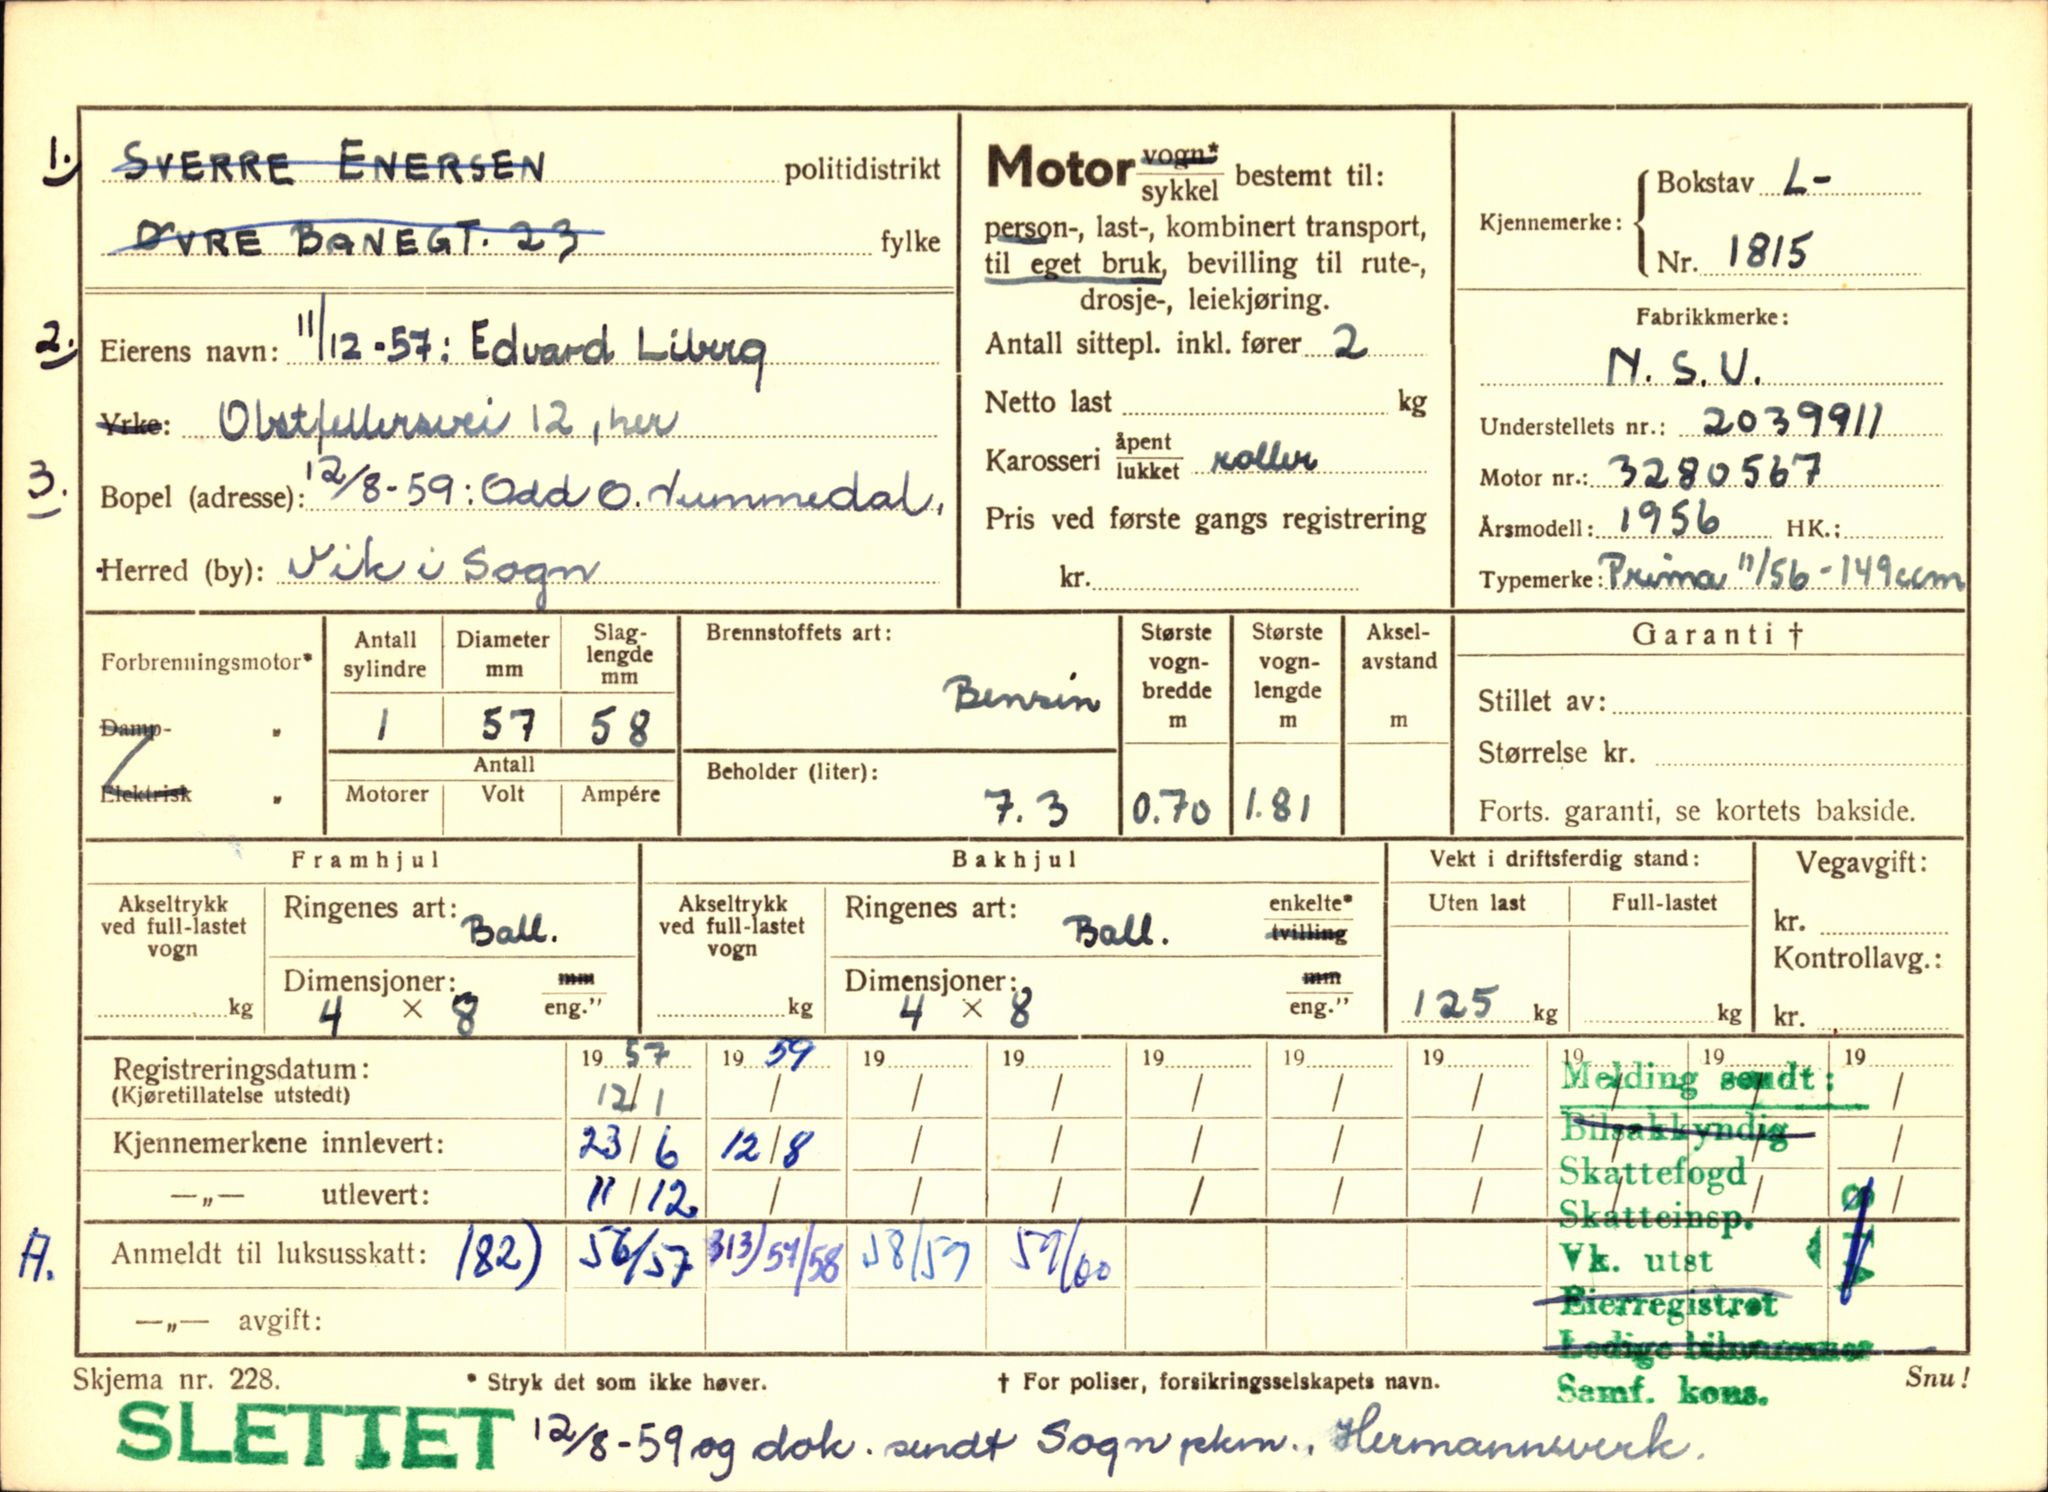 1. SVERRE ENERSEN politidistrikt
ØVRE BANEGT. 23 fylke
2. Eierens navn: 11/12-57: Edvard Liberg
Yrke: Obstfeldersvei 12, her
3. Bopel (adresse): 12/8-59: Odd O. Nummedal,
Herred (by): Vik i Sogn
Motor vogn* / sykkel bestemt til:
person-, last-, kombinert transport,
til eget bruk, bevilling til rute-,
drosje-, leiekjøring.
Antall sittepl. inkl. fører 2
Netto last kg
Karosseri åpent / lukket roller
Pris ved første gangs registrering
kr.
Kjennemerke: Bokstav L-
Nr. 1815
Fabrikkmerke:
N. S. U.
Understellets nr.: 2039911
Motor nr.: 3280567
Årsmodell: 1956 HK.:
Typemerke: Prima 11/56 - 149 ccm
Forbrenningsmotor*
Damp- "
Elektrisk "
Antall sylindre Diameter mm Slag-lengde mm
1 57 58
Antall
Motorer Volt Ampére
Brennstoffets art:
Bensin
Beholder (liter):
7.3
Største vogn-bredde m
0.70
Største vogn-lengde m
1.81
Aksel-avstand m
Garanti †
Stillet av:
Størrelse kr.
Forts. garanti, se kortets bakside.
Framhjul
Akseltrykk ved full-lastet vogn kg
Ringenes art: Ball.
Dimensjoner: mm / eng."
4 × 8
Bakhjul
Akseltrykk ved full-lastet vogn kg
Ringenes art: Ball. enkelte* / tvilling
Dimensjoner: mm / eng."
4 × 8
Vekt i driftsferdig stand:
Uten last Full-lastet
125 kg kg
Vegavgift:
kr.
Kontrollavg.:
kr.
Registreringsdatum: 19 57 19 59 19 19 19 19 19 19 19 19
(Kjøretillatelse utstedt) 12/1 / / / / / / / / /
Kjennemerkene innlevert: 23/6 12/8 / / / / / / / /
—„— utlevert: 11/12 / / / / / / / / /
A. Anmeldt til luksusskatt: 182) 56/57 313) 57/58 58/59 59/60
—„— avgift:
Melding sendt:
Bilsakkyndig
Skattefogd
Skatteinsp.
Vk. utst
Eierregistret
Ledige bilnummer
Samf. kons.
Skjema nr. 228. * Stryk det som ikke høver. † For poliser, forsikringsselskapets navn. Snu!
SLETTET 12/8-59 og dok. sendt Sogn pkm., Hermannsverk.